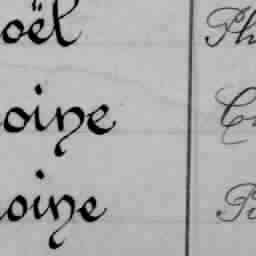 oël Ph
oine
oine